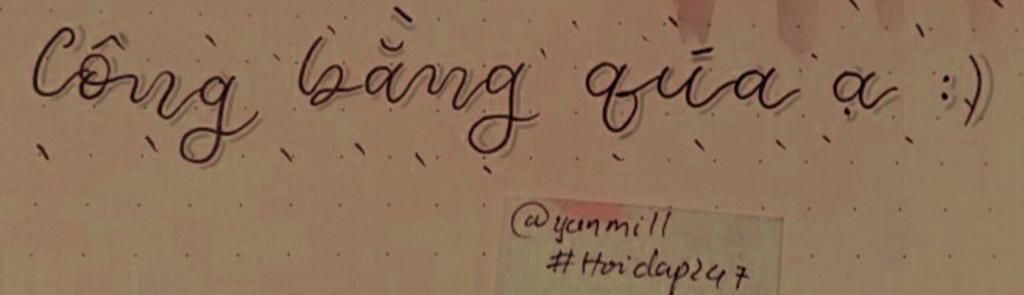 Công bằng qúa ạ :)
@yunmill
#Hoidap247